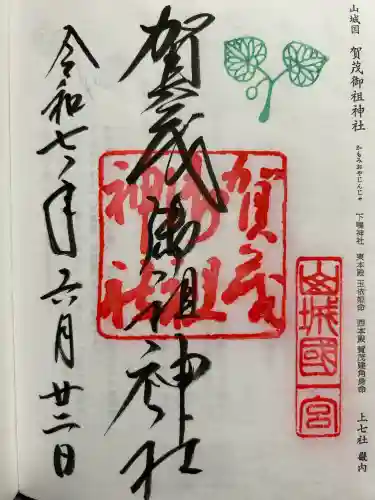 山城国 賀茂御祖神社
かもみおやじんじゃ
下鴨神社 東本殿 玉依媛命 西本殿 賀茂建角身命
上七社 畿内
山城國一宮
賀茂御祖神社
賀茂御祖神社
令和七年六月廿二日